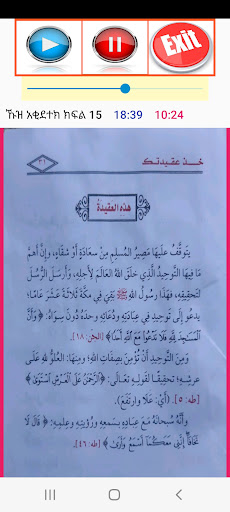 Exit
ኹዝ አቂደተክ ክፍል 15 18:39 10:24
خـــذ عقـيـدتـــك
٣١
هٰذِهِ العَقِيْدَةُ
يَتَوَقَّفُ عَلَيْهَا مَصِيْرُ المُسْلِمِ مِنْ سَعَادَةٍ أَوْ شَقَاءٍ، وَإِنَّ أَهَمَّ
مَا فِيْهَا التَّوحِيْدُ الَّذِي خَلَقَ اللهُ العَالَمَ لِأَجْلِهِ، وَأَرْسَلَ الرُّسُلَ
لِتَحْقِيْقِهِ، فَهَذَا رَسُولُ اللهِ ﷺ بَقِيَ فِي مَكَّةَ ثَلَاثَةَ عَشَرَ عَامًا؛
يَدعُو إِلَى تَوحِيدٍ فِي عِبَادَتِهِ وَدُعَائِهِ وَحدَهُ دُونَ سِوَاهُ: ﴿وَأَنَّ
ٱلْمَسَٰجِدَ لِلَّهِ فَلَا تَدْعُوا۟ مَعَ ٱللَّهِ أَحَدًا﴾ [الجن: ١٨].
وَمِنَ التَّوحِيْدِ أَنْ نُؤْمِنَ بِصِفَاتِ اللهِ؛ وَمِنْهَا: العُلُوُّ للهِ عَلَى
عَرشِهِ؛ تَحقِيقًا لقَولِهِ تَعَـالَى: ﴿ٱلرَّحْمَٰنُ عَلَى ٱلْعَرْشِ ٱسْتَوَىٰ﴾
[طه: ٥]. (أَيْ: عَلَا وَارتَفَعَ).
وَأَنَّهُ سُبحَانَهُ مَعَ عِبَادِهِ بِسَمعِهِ وَرُؤيَتِهِ وَعِلمِهِ: ﴿قَالَ لَا
تَخَافَآ إِنَّنِى مَعَكُمَآ أَسْمَعُ وَأَرَىٰ﴾ [طه: ٤٦].